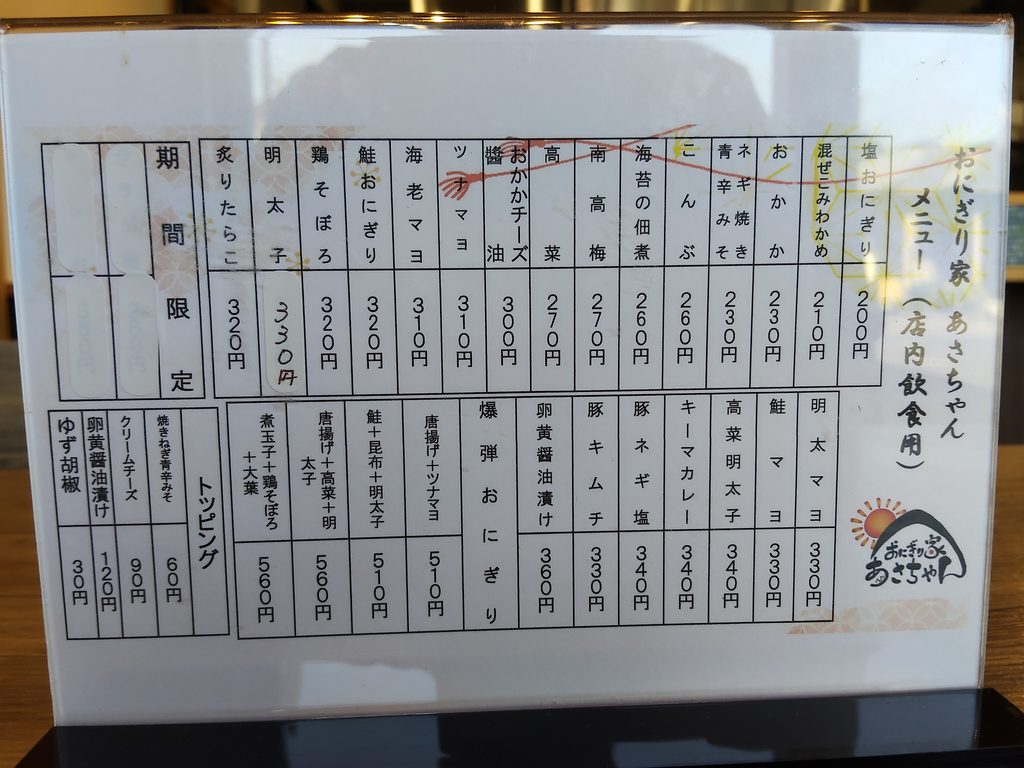 おにぎり家 あさちゃん
メニュー（店内飲食用）
塩おにぎり 200円
混ぜこみわかめ 210円
おかか 230円
ネギ焼き
青辛みそ 230円
こんぶ 260円
海苔の佃煮 260円
南高梅 270円
高菜 270円
おかかチーズ
醬油 300円
ツナマヨ 310円
海老マヨ 310円
鮭おにぎり 320円
鶏そぼろ 320円
明太子 330円
炙りたらこ 320円
期間限定
明太マヨ 330円
鮭マヨ 330円
高菜明太子 340円
キーマカレー 340円
豚ネギ塩 340円
豚キムチ 330円
卵黄醤油漬け 360円
爆弾おにぎり
唐揚げ＋ツナマヨ 510円
鮭＋昆布＋明太子 510円
唐揚げ＋高菜＋明
太子 560円
煮玉子＋鶏そぼろ
＋大葉 560円
トッピング
焼きねぎ青辛みそ 60円
クリームチーズ 90円
卵黄醤油漬け 120円
ゆず胡椒 30円
おにぎり家
あさちゃん